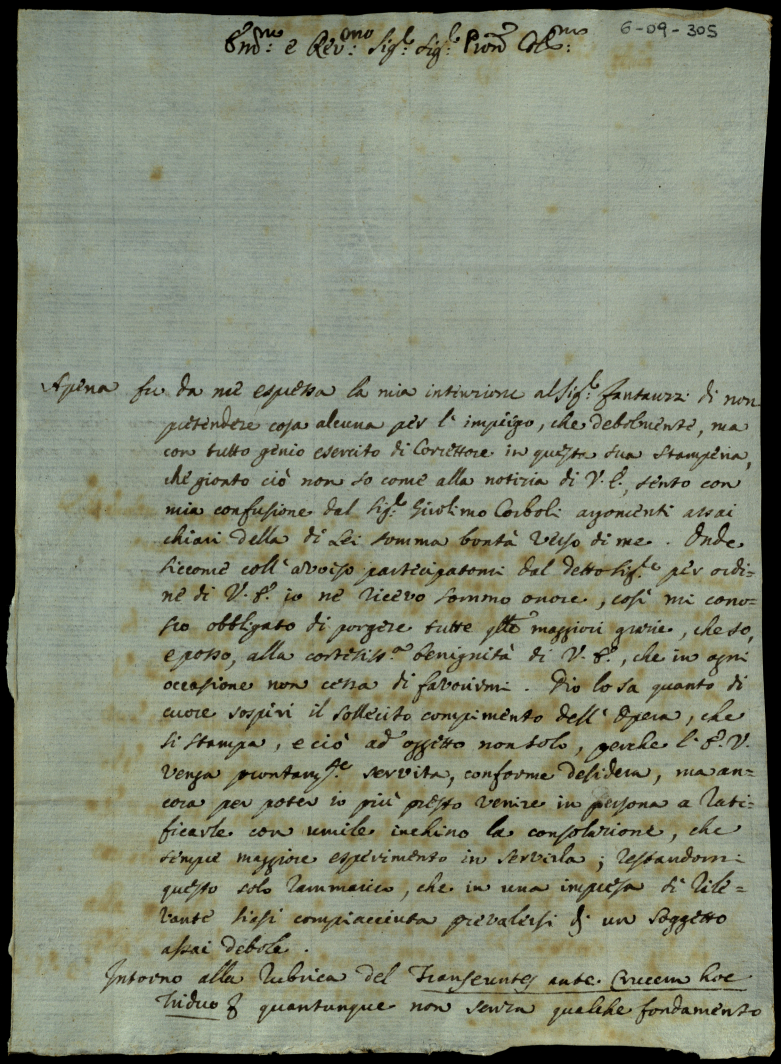 6-09-305
Em̃o: e Rev:mo Sig.r Sig.r Pron̄ Col:mo
Apena fu da me espressa la mia intenzione al Sig.r Fantauzzi di non
pretendere cosa alcuna per l'impiego, che debolmente, ma
con tutto genio esercito di Correttore in questa sua stamperia,
che gionto ciò non so come alla notizia di V. E., sento con
mia confusione dal Sig.r Girolimo Corboli argomenti assai
chiari della di Lei somma bontà verso di me. Onde
siccome coll'avviso partecipatomi dal detto Sig.r per ordi=
ne di V. E. io ne ricevo sommo onore, così mi cono=
sco obbligato di porgere tutte q̃lle maggiori grazie, che so,
e posso, alla cortesiss.a benignità di V. E., che in ogni
occasione non cessa di favorirmi. Dio lo sa quanto di
cuore sospiri il sollecito compimento dell'Opera, che
si stampa, e ciò ad oggetto non solo, perche l'E. V.
venga prontam.te servita, conforme desidera, ma an=
cora per poter io più presto venire in persona a rati=
ficarle con umile inchino la consolazione, che
sempre maggiore esperimento in servirla; restandomi
questo solo rammarico, che in una impresa di rile=
vante siasi compiacciuta prevalersi di un soggetto
assai debole.
Intorno alla rubrica del Transeuntes ante Crucem hoc
Triduo & quantunque non senza qualche fondamento